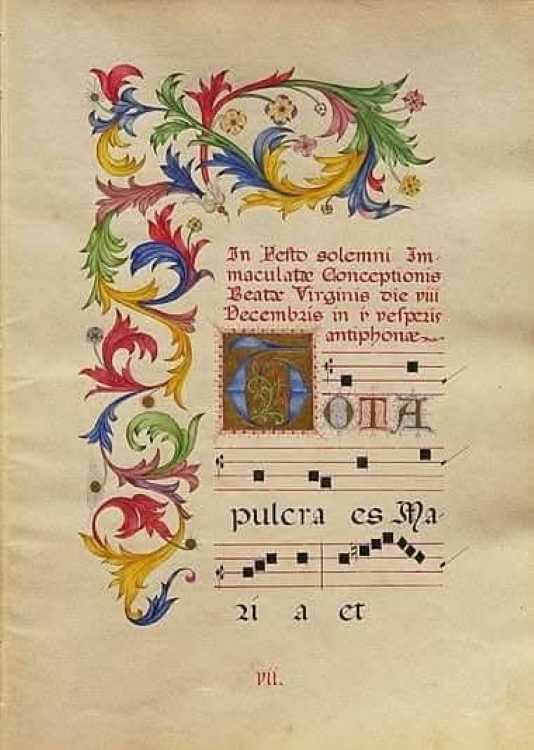 In Festo solemni Im-
maculatæ Conceptionis
Beatæ Virginis die viii
Decembris in iis vesperis
antiphonæ
TOTA
pulcra es Ma-
ri a et
vii.